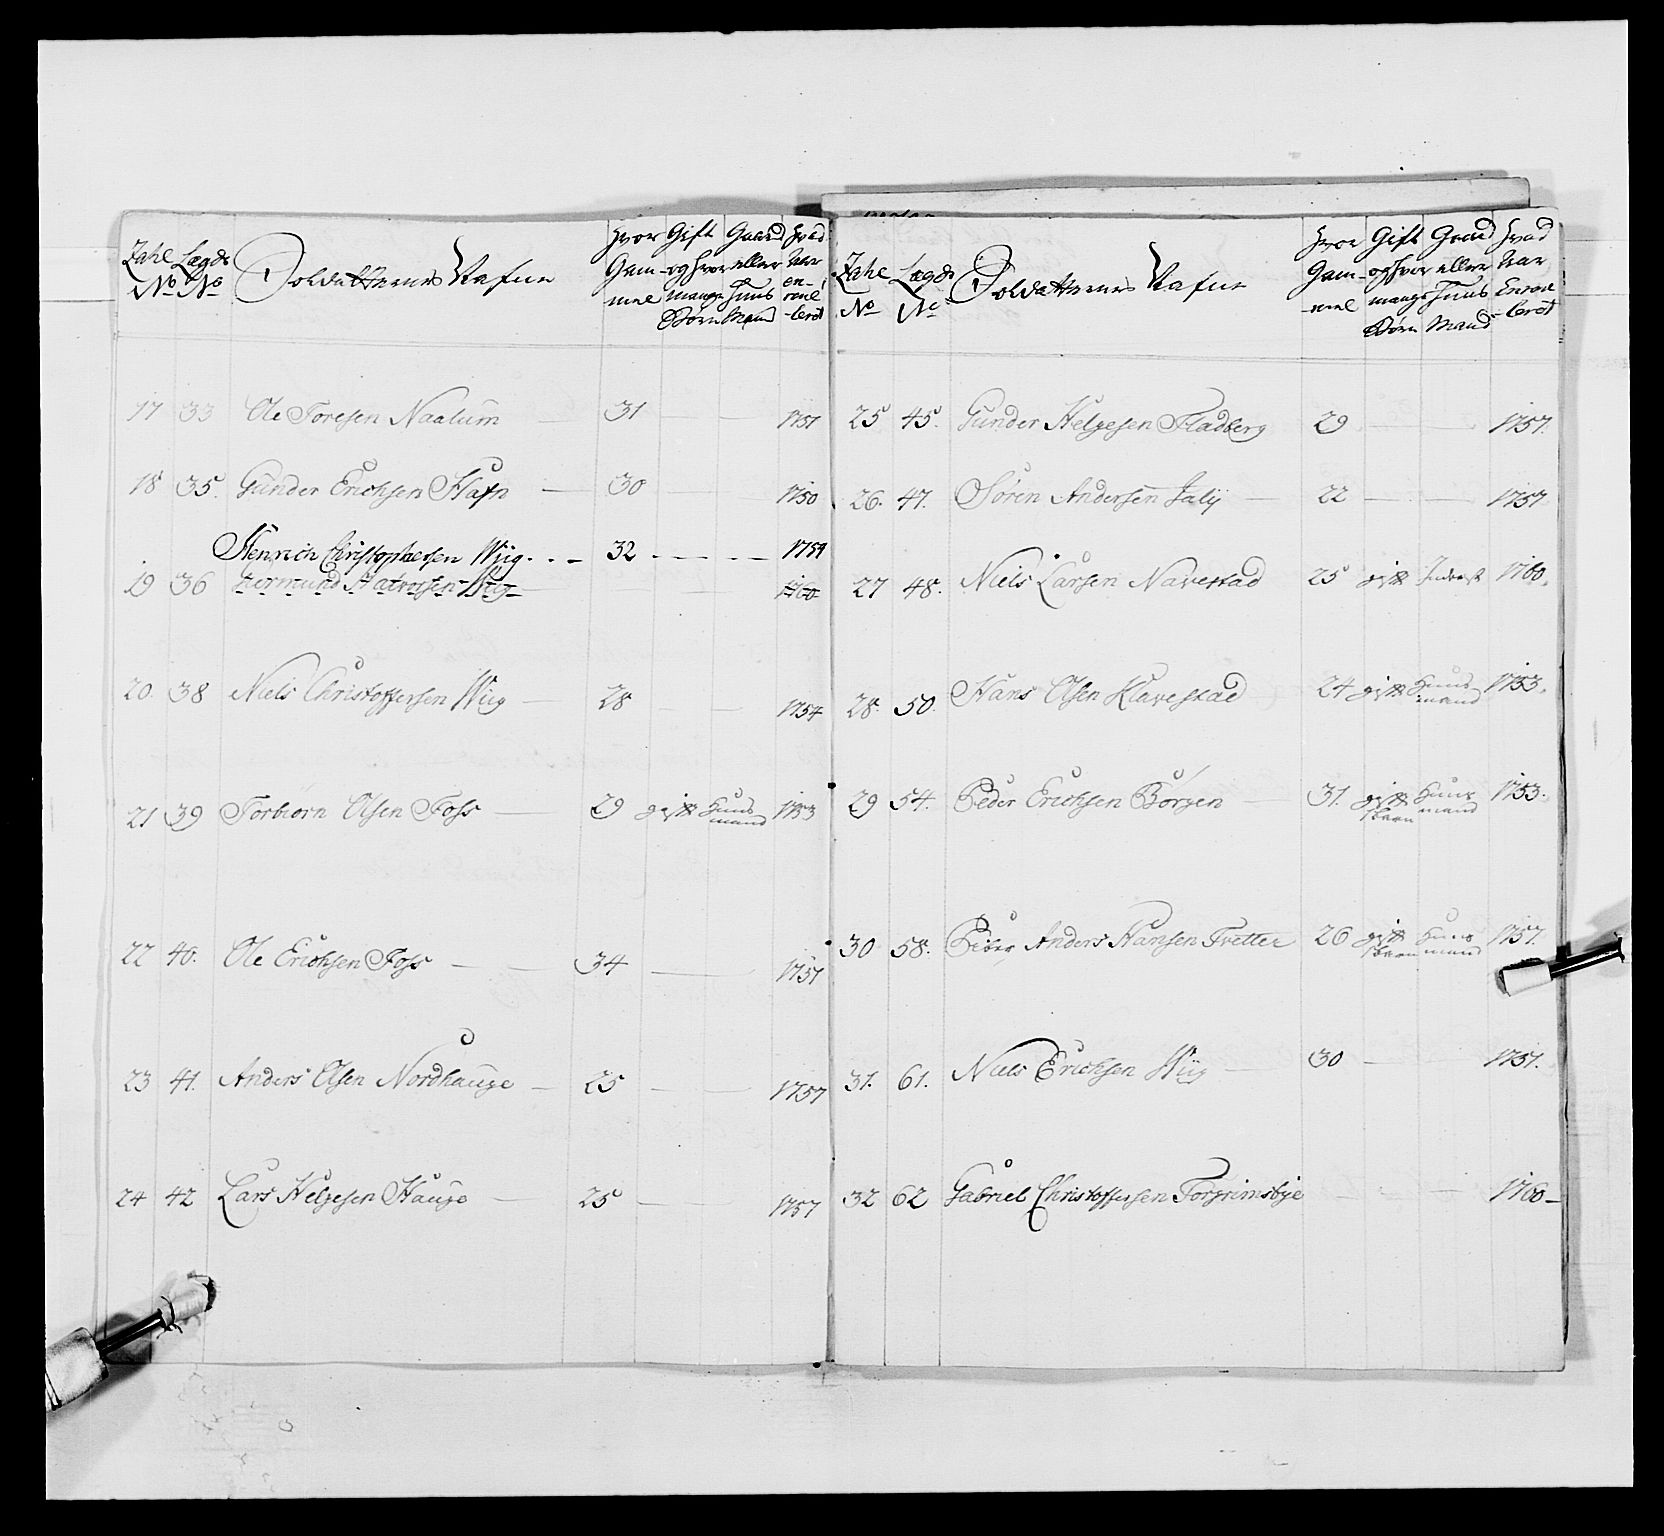 Zahl No | Lægds No | Soldatternes Nafne | Hvor Gammel | Gift og hvor mange Børn | Gaard eller Huus Mand | Hvad Aar enroulerot
17 33 Ole Toresen Naalum — 31 — — 1757
18 35. Gunder Erichsen Hafn — 30 — — 1750
Henrich Christophersen Wiig. 32 — — 1759
19 36 Halvorsen Wiig — — — 1760
20. 38 Niels Christoffersen Wiig — 28 — — 1754
21 39 Torbiörn Olsen Foss — 29 gift Huusmand 1753
22 40. Ole Erichsen Foss — 34 — — 1757
23 41. Anders Olsen Nordhauge — 25 — — 1757
24 42 Lars Helgesen Hauge — 25 — — 1757
Zahl No | Lægds No | Soldatternes Nafne | Hvor Gammel | Gift og hvor mange Børn | Gaard eller Huus Mand | Hvad Aar Enroulerot
25 45. Gunder Helgesen Fladberg 29 — — 1757.
26. 47. Sören Andersen — 22 — — 1757
27 48. Niels Larsen Navestad 25 gift Inderst 1760.
28. 50. Hans Olsen Klavestad 24 gift Huusmand 1753.
29 54. Peder Erichsen Börgen — 31. gift Huusmand 1753.
30 58. Anders Hansen Tvetter 26 gift Huusmand 1757.
31. 61. Niels Erichsen Wiig — 30 — — 1757.
32 62 Gabriel Christoffersen Torgrimsbye — — 1760 —